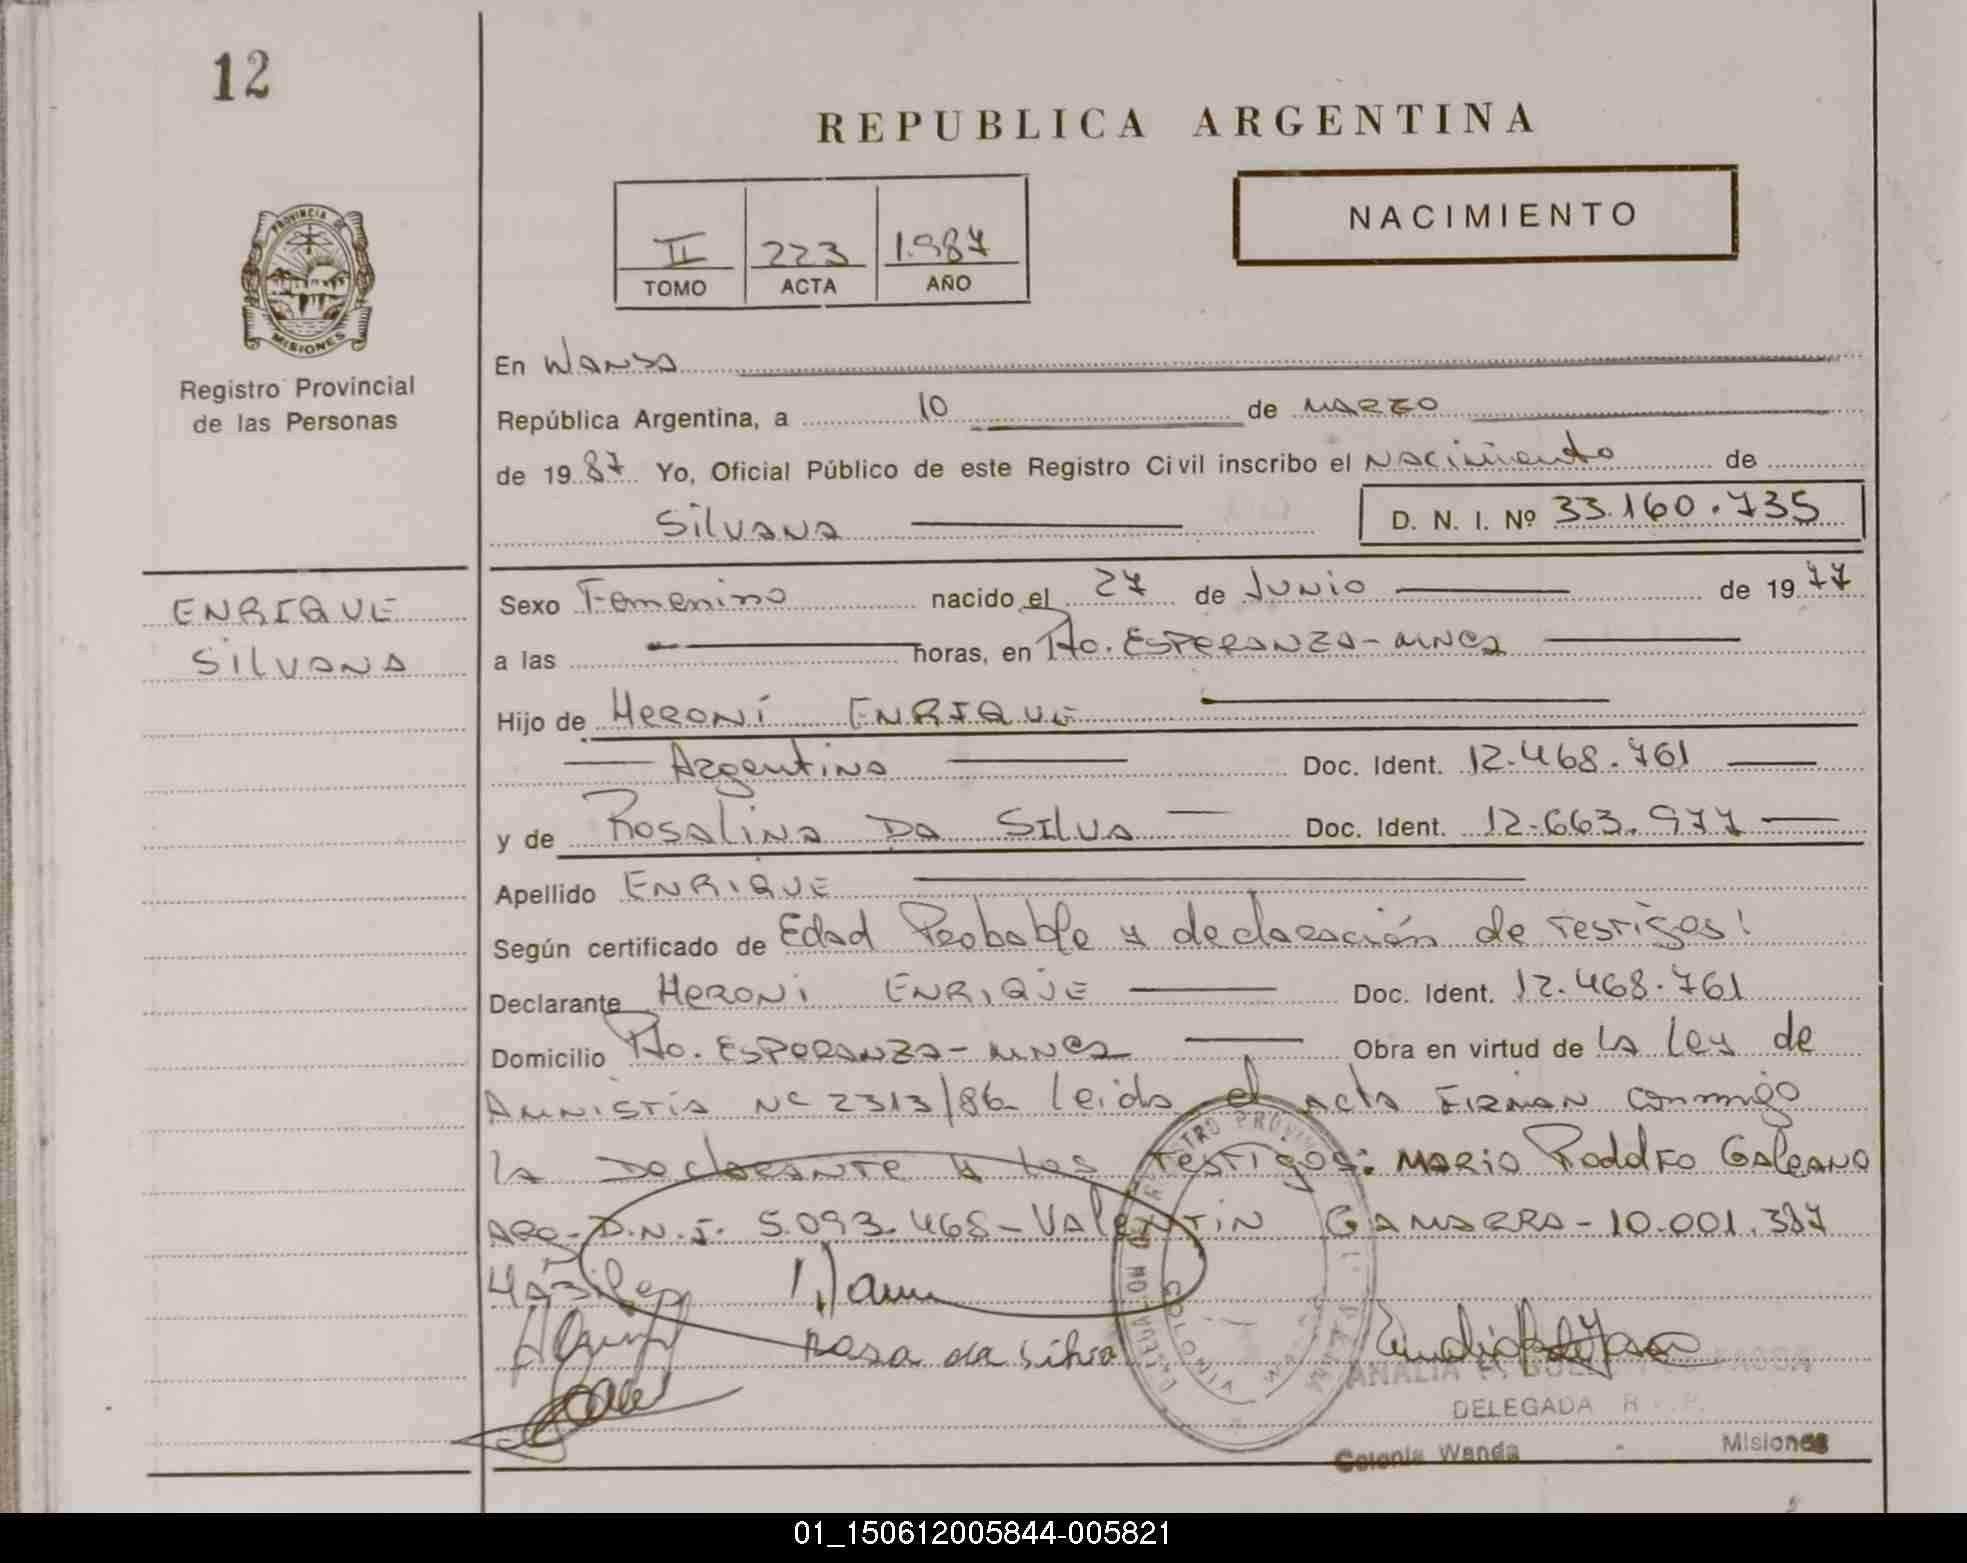 12
REPUBLICA ARGENTINA
NACIMIENTO
II 223 1.987
TOMO ACTA AÑO
PROVINCIA DE
MISIONES
Registro Provincial
de las Personas
En WANDA
República Argentina, a 10 de MARZO
de 1987 Yo, Oficial Público de este Registro Civil inscribo el NACimiento de
SilVANA D. N. I. Nº 33.160.735
ENRIQUE
SilVANA
Sexo Femenino nacido el 27 de Junio de 1977
a las horas, en Pto. ESPERANZA - MNES
Hijo de HERONi ENRIQUE
Argentino Doc. Ident. 12.468.761
y de Rosalina DA SILVA Doc. Ident. 12.663.977
Apellido ENRIQUE
Según certificado de Edad Probable y declaración de testigos!
Declarante HERONi ENRIQUE Doc. Ident. 12.468.761
Domicilio Pto. ESPERANZA - MNES Obra en virtud de LA Ley de
AMNISTIA Nº 2313/86 leida el ACTA FIRMAN conmigo
LA DeclarANTE y los TESTIGOS: MARIO RODOLFO GALEANO
ARG - D.N.I. 5.093.468 - VALENTIN GAMARRA - 10.001.387
Rosa da Silva
DELEGADA R. P.
Colonia Wanda - Misiones
01_150612005844-005821